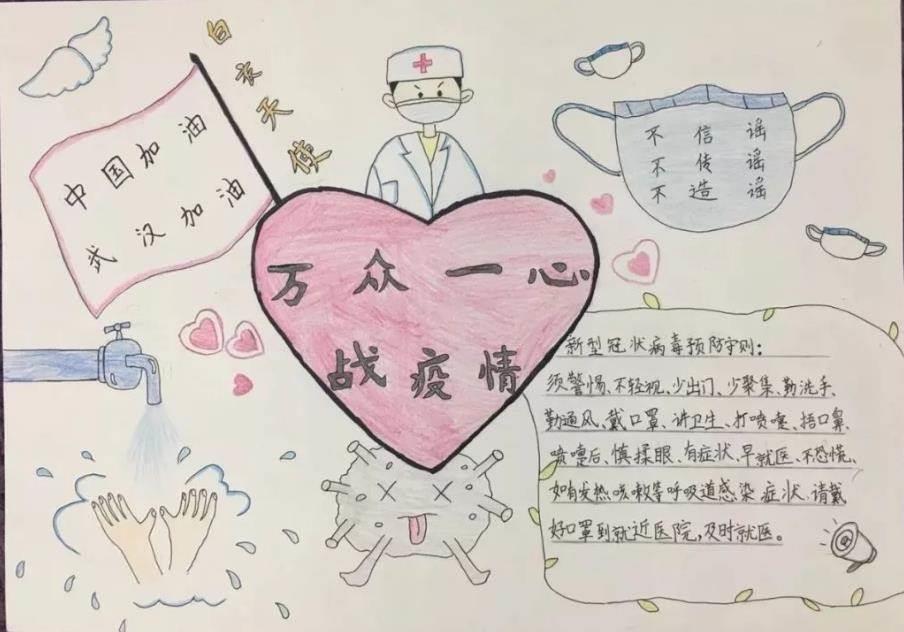 白衣天使
中国加油
武汉加油
不信谣
不传谣
不造谣
万众一心
战疫情
新型冠状病毒预防守则：
须警惕、不轻视、少出门、少聚集、勤洗手、
勤通风、戴口罩、讲卫生、打喷嚏、捂口鼻、
喷嚏后、慎揉眼、有症状、早就医、不恐慌、
如有发热咳嗽等呼吸道感染症状，请戴
好口罩到就近医院，及时就医。